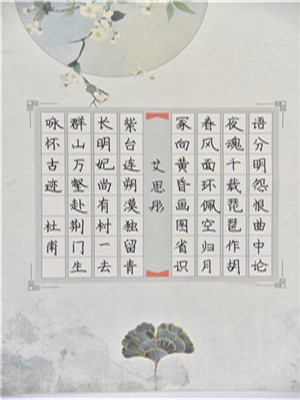 咏怀古迹 杜甫
群山万壑赴荆门生
长明妃尚有村一去
紫台连朔漠独留青
艾思彤
冢向黄昏画图省识
春风面环佩空归月
夜魂千载琵琶作胡
语分明怨恨曲中论